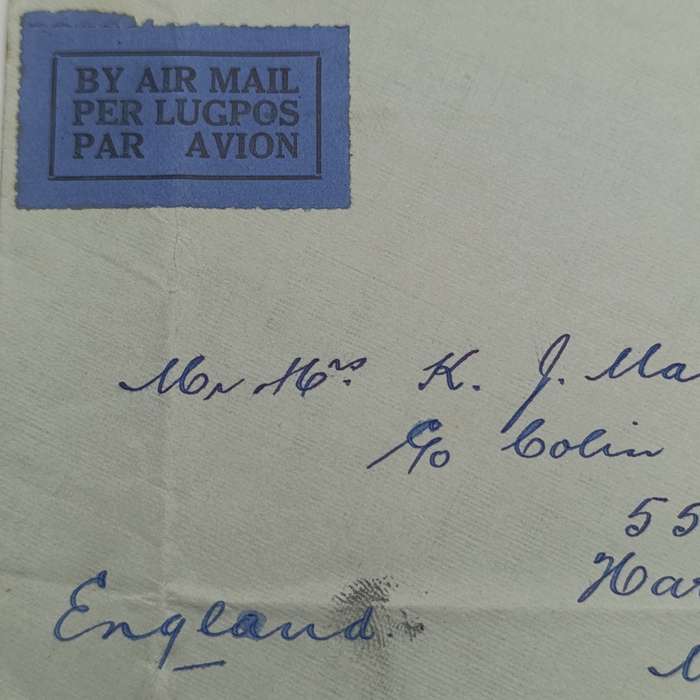 BY AIR MAIL
PER LUGPOS
PAR AVION
Mr Mrs. K. J. Ma
c/o Colin
55
Har
England